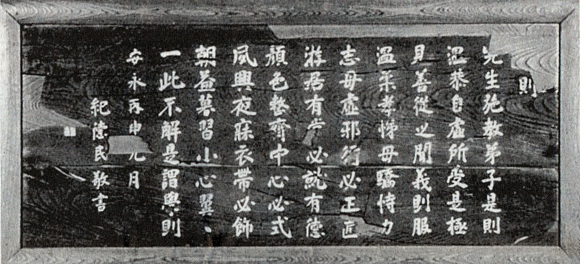 則
先生施教弟子是則
温恭自虚所受是極
見善従之聞義則服
温柔孝悌毋驕恃力
志毋虚邪行必正直
游居有常必就有徳
顔色整齊中心必式
夙興夜寐衣帶必飾
朝益暮習小心翼〻
一此不解是謂學則
安永丙申九月
紀徳民敬書